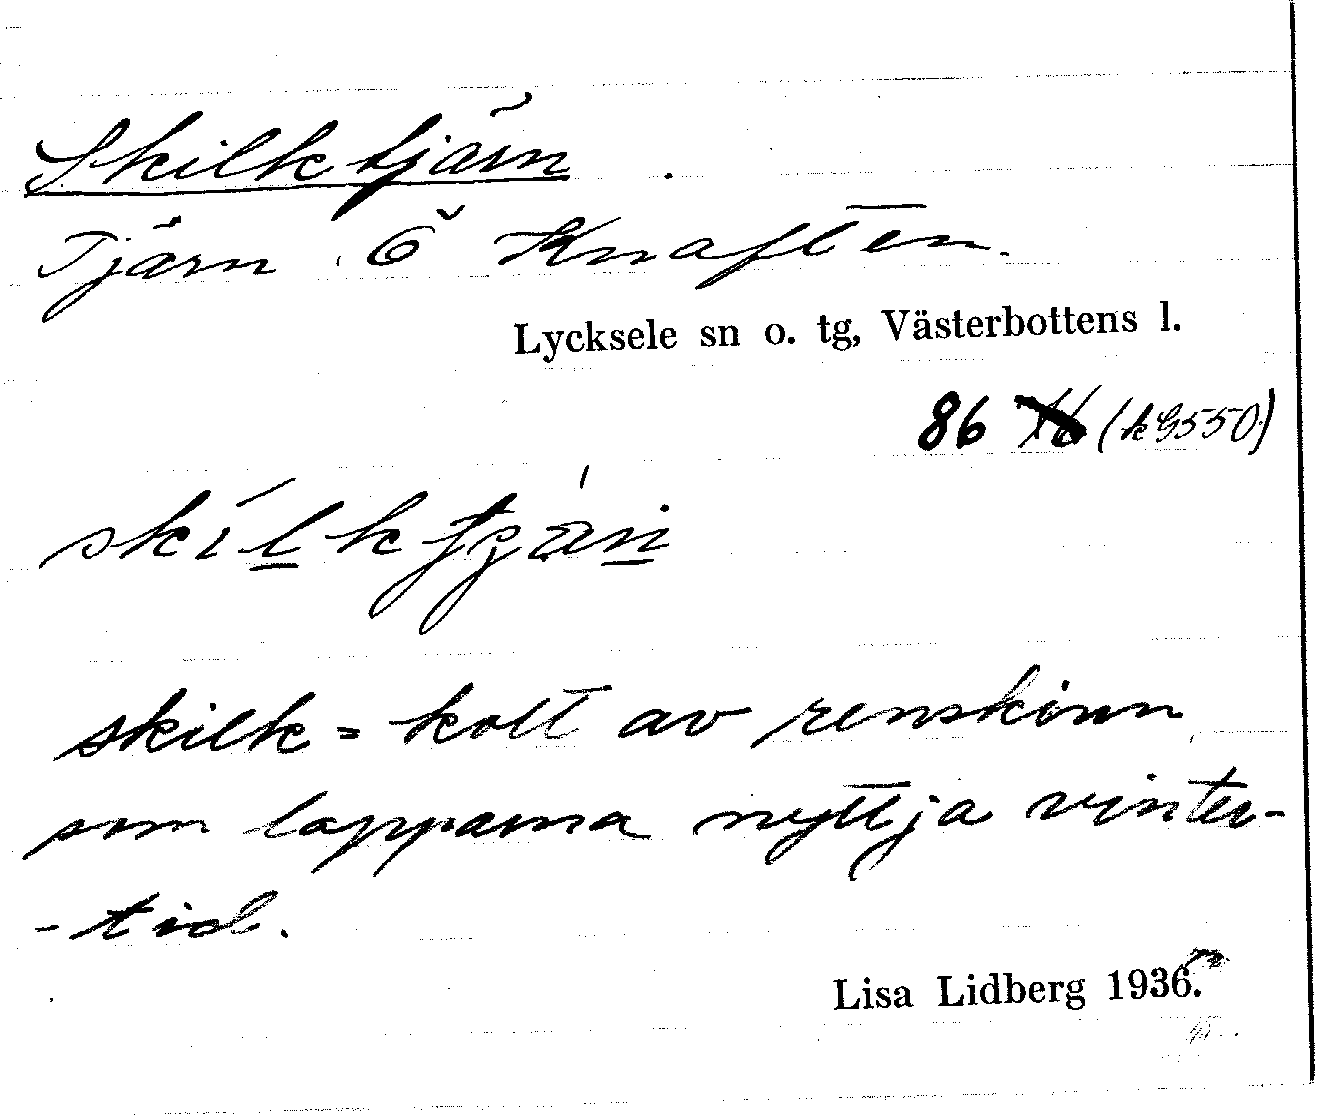 Skilktjärn
Tjärn Ö Knaften.
Lycksele sn o. tg, Västerbottens l.
86 (k 9550)
skilk = kolt av renskinn
som lapparna nyttja vinter-
-tid.
Lisa Lidberg 1936.